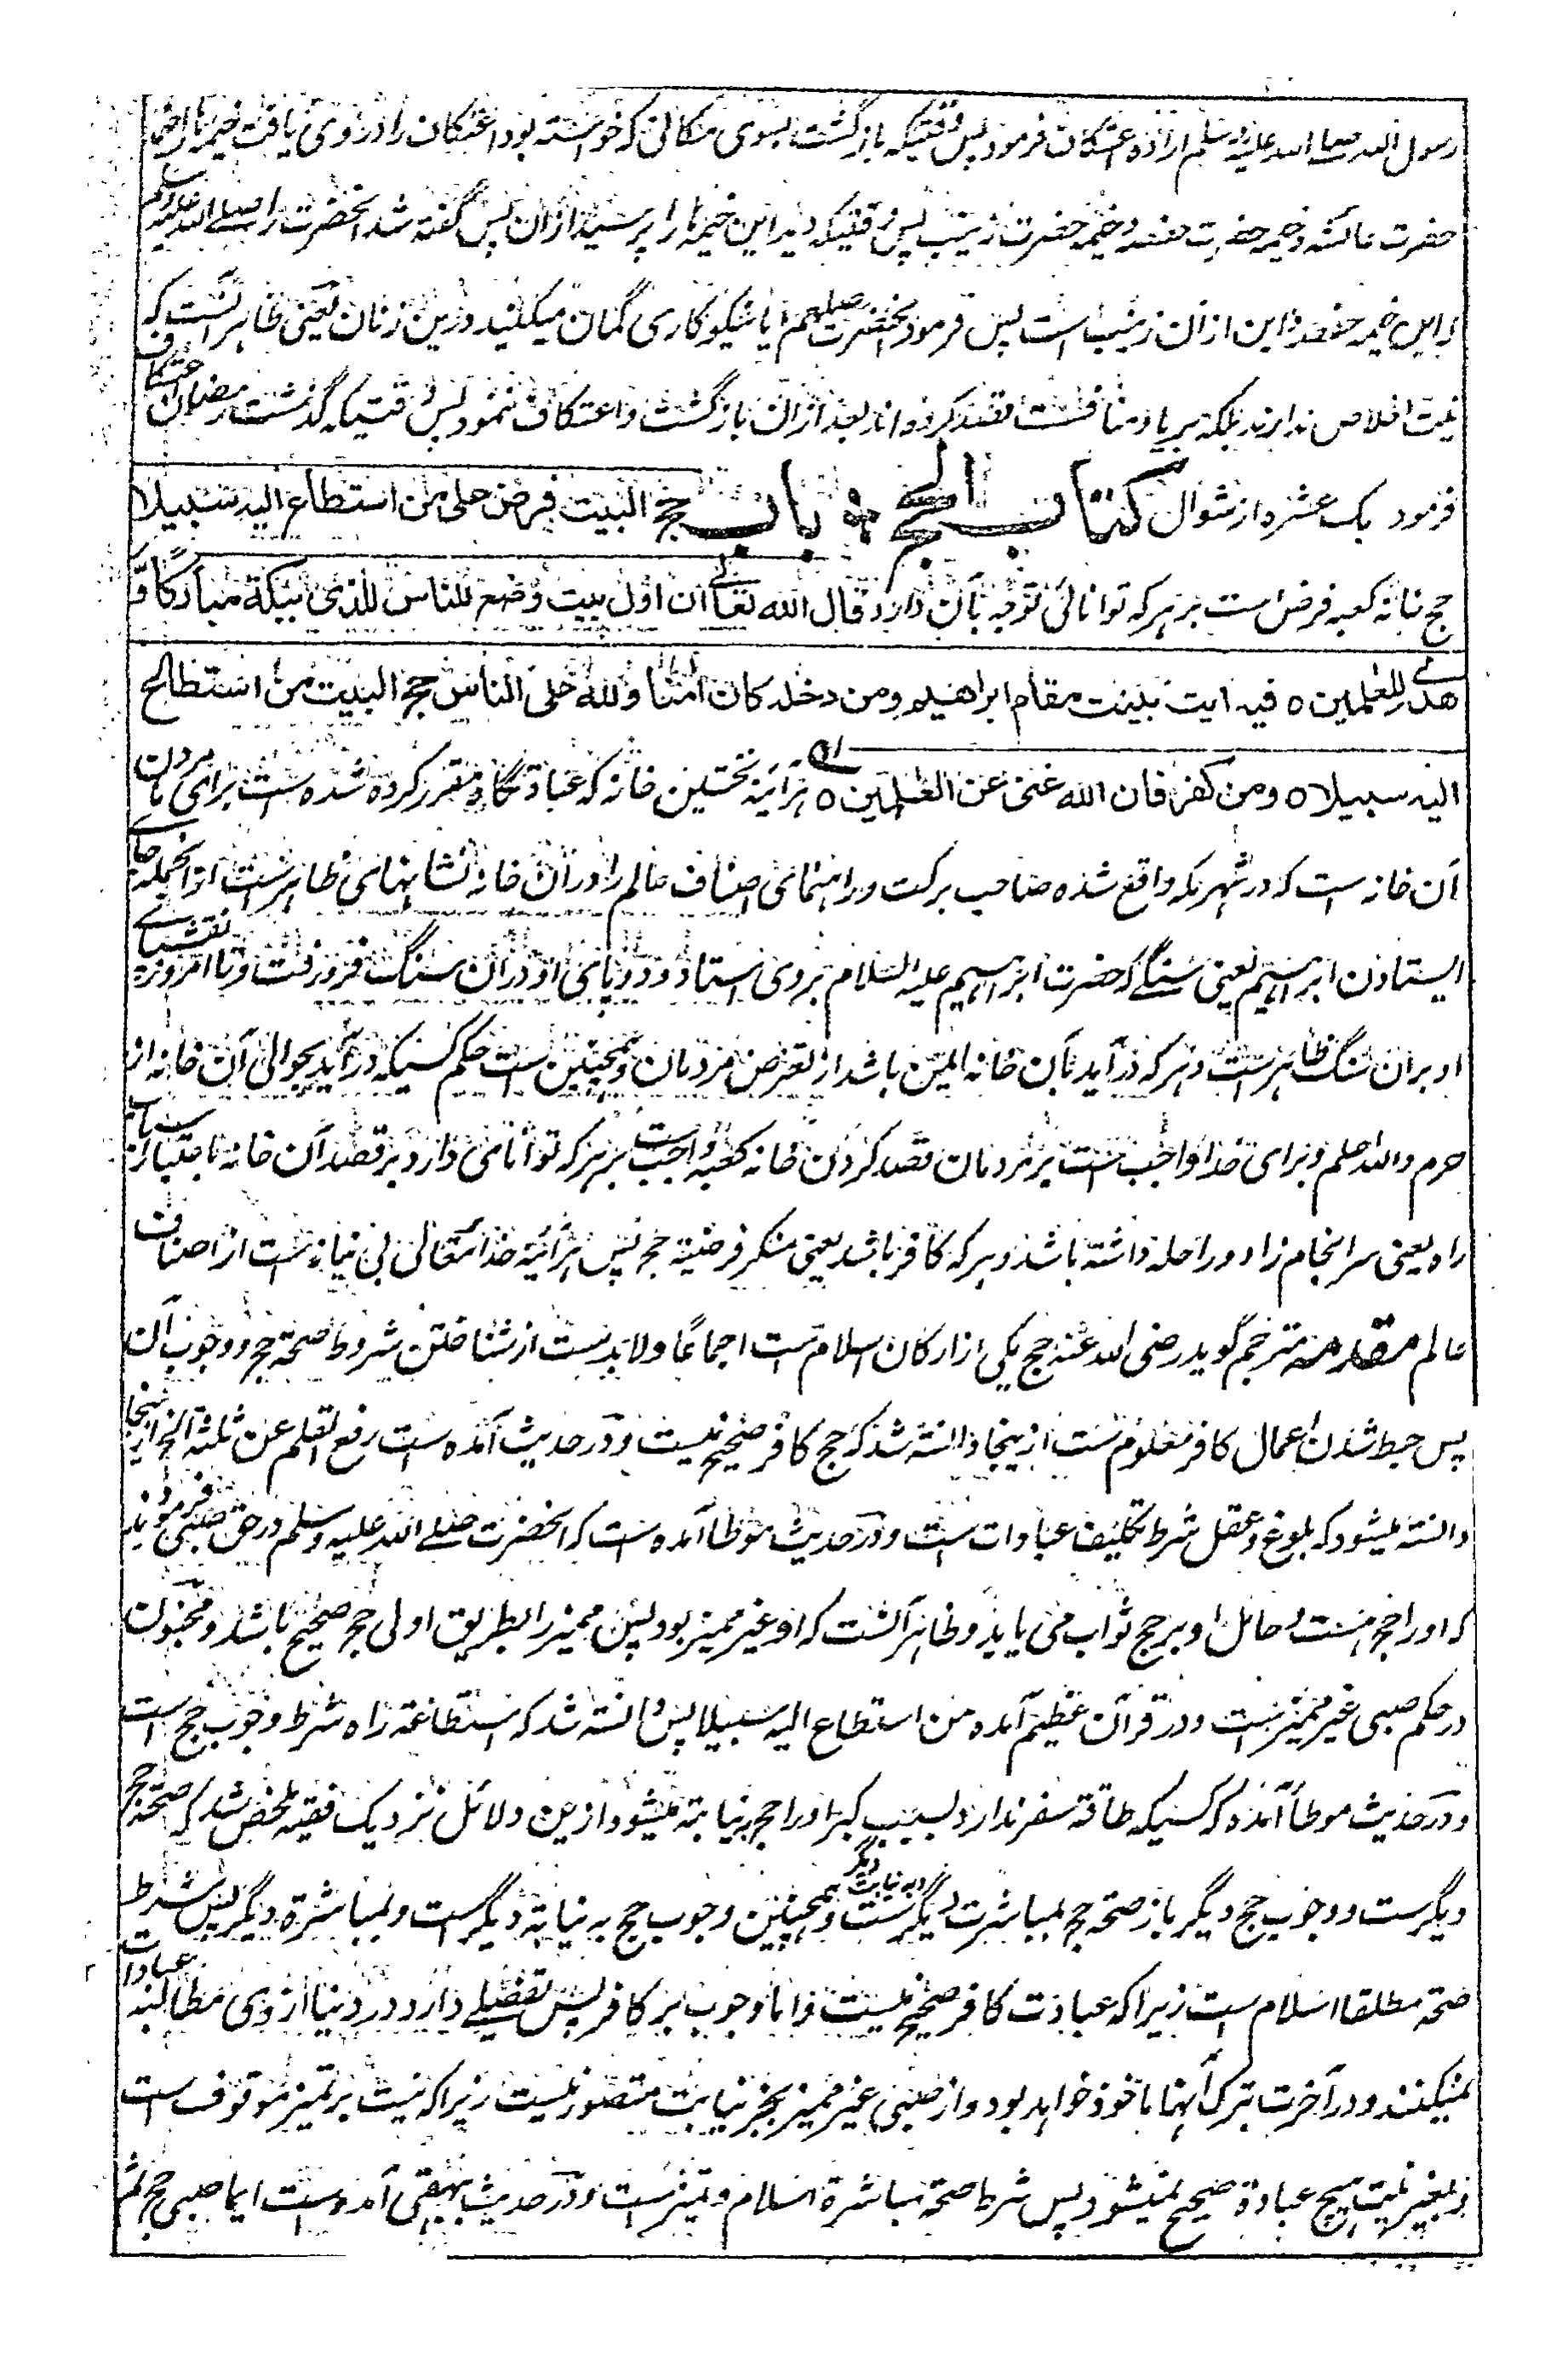 رسول الله صلی الله علیه وسلم اراده اعتکاف فرمود پس وقتیکه بازگشت بسوی مکانی که خواسته بود اعتکاف را در وی یافت خیمه‌ها را خیمه
حضرت عائشه و خیمه حضرت حفصه و خیمه حضرت زینب پس وقتیکه دید این خیمه‌ها را پرسید از آن پس گفته شد آنحضرت را صلی الله علیه وسلم
این خیمه حفصه و این ازان زینب است پس فرمود آنحضرت صلعم آیا نیکوکاری گمان میکنید درین زنان یعنی ظاهر آنست که
نیت اخلاص ندارند بلکه بریا و منافست قصد کرده‌اند بعد ازان بازگشت و اعتکاف ننمود پس وقتیکه گذشت رمضان اعتکاف
فرمود یک عشره از شوال کتاب الحج باب حج البیت فرض علی من استطاع الیه سبیلا
حج خانه کعبه فرض است بر هر که توانائی توجه بآن دارد قال الله تعالے ان اول بیت وضع للناس للذی ببکة مبارکا و
هدے للعلمین ○ فیه ایت بینت مقام ابراهیم ومن دخله کان امنا ولله علی الناس حج البیت من استطاع
الیه سبیلا ○ ومن کفر فان الله غنی عن العلمین ○ هرآئینه نخستین خانه که عبادتگاه مقرر کرده شده است برای مردمان
آن خانه است که در شهر مکه واقع شده صاحب برکت و راهنمای اصناف عالم را در آن خانه نشانهای ظاهرست ازانجمله جاے
ایستادن ابراهیم یعنی سنگے که حضرت ابراهیم علیه السلام بروی استاد و دو پای او دران سنگ فرو رفت و تا امروز نقشهاے
او بران سنگ ظاهرست و هر که درآید بآن خانه ایمن باشد از تعرض مردمان و همچنین ست حکم کسیکه درآید بحوالی آن خانه از
حرم والله اعلم و برای خدا واجب ست بر مردمان قصد کردن خانه کعبه واجب است بر هر که توانائی دارد بر قصد آن خانه باعتبار اسباب
راه یعنی سرانجام زاد و راحله داشته باشد و هر که کافر باشد یعنی منکر فرضیة حج پس هرآئینه خدایتعالی بی نیازست از اصناف
عالم مقدمه مترجم گوید رضی الله عنه حج یکی از ارکان اسلام ست اجماعًا و لابدست از شناختن شروط صحة حج و وجوب آن
پس حبط شدن اعمال کافر معلوم ست ازینجا دانسته شد که حج کافر صحیح نیست و در حدیث آمده ست رفع القلم عن ثلثة الخ ازینجا
دانسته میشود که بلوغ و عقل شرط تکلیف عبادات ست و در حدیث موطا آمده ست که آنحضرت صلے الله علیه وسلم در حق صبی فرمودند
که او را حج هست و حامل او بر حج ثواب می یابد و ظاهر آنست که او غیر ممیز بود پس ممیز را بطریق اولی حج صحیح باشد و مجنون
در حکم صبی غیر ممیز ست و در قرآن عظیم آمده من استطاع الیه سبیلا پس دانسته شد که استطاعة راه شرط وجوب حج است
و در حدیث موطا آمده که کسیکه طاقة سفر ندارد بسبب کبر او را حج بنیابة میشود ازین دلائل نزدیک فقیه ملخص شد که صحة حج
دیگرست و وجوب حج دیگر باز صحة حج بمباشرت دیگرست و به نیابت دیگر و همچنین وجوب حج به نیابة دیگرست و بمباشرة دیگر پس شرط
صحة مطلقا اسلام است زیرا که عبادت کافر صحیح نیست و اما وجوب بر کافر پس تفصیلے دارد در دنیا از وی مطالبه عبادات
نمیکنند و در آخرت بترک آنها ماخوذ خواهد بود و از صبی غیر ممیز بجز نیابت متصور نیست زیرا که نیت بر تمیز موقوف است
و بغیر نیت هیچ عبادة صحیح نمیشود پس شرط صحة مباشرة اسلام و تمیز ست و در حدیث بیهقی آمده ست ایما صبی حج ثم